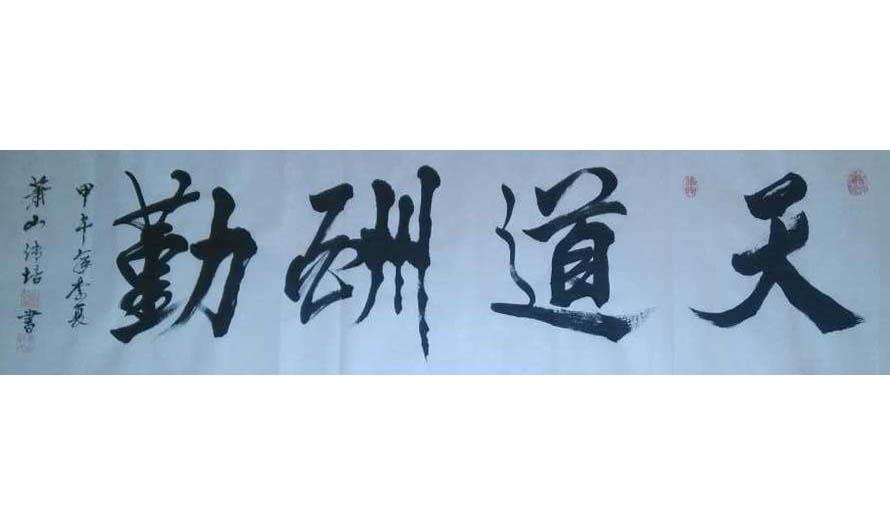 天道酬勤
甲午年季夏
萧山 培書